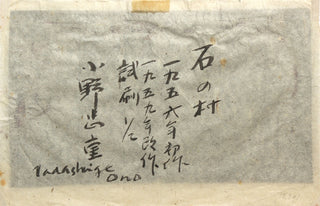 石の村
一九五六年初作
一九五九年改作
試刷 1/2
小野忠重
Tadashige
Ono